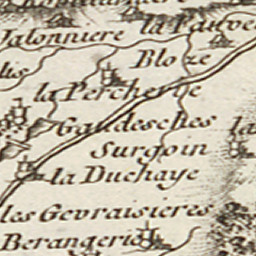 la Pauve
Jalonniere
Bloze
lis
la Percherie
Gaudesches
la
Surgoin
la Duchaye
les Gevraisieres
Berangerie